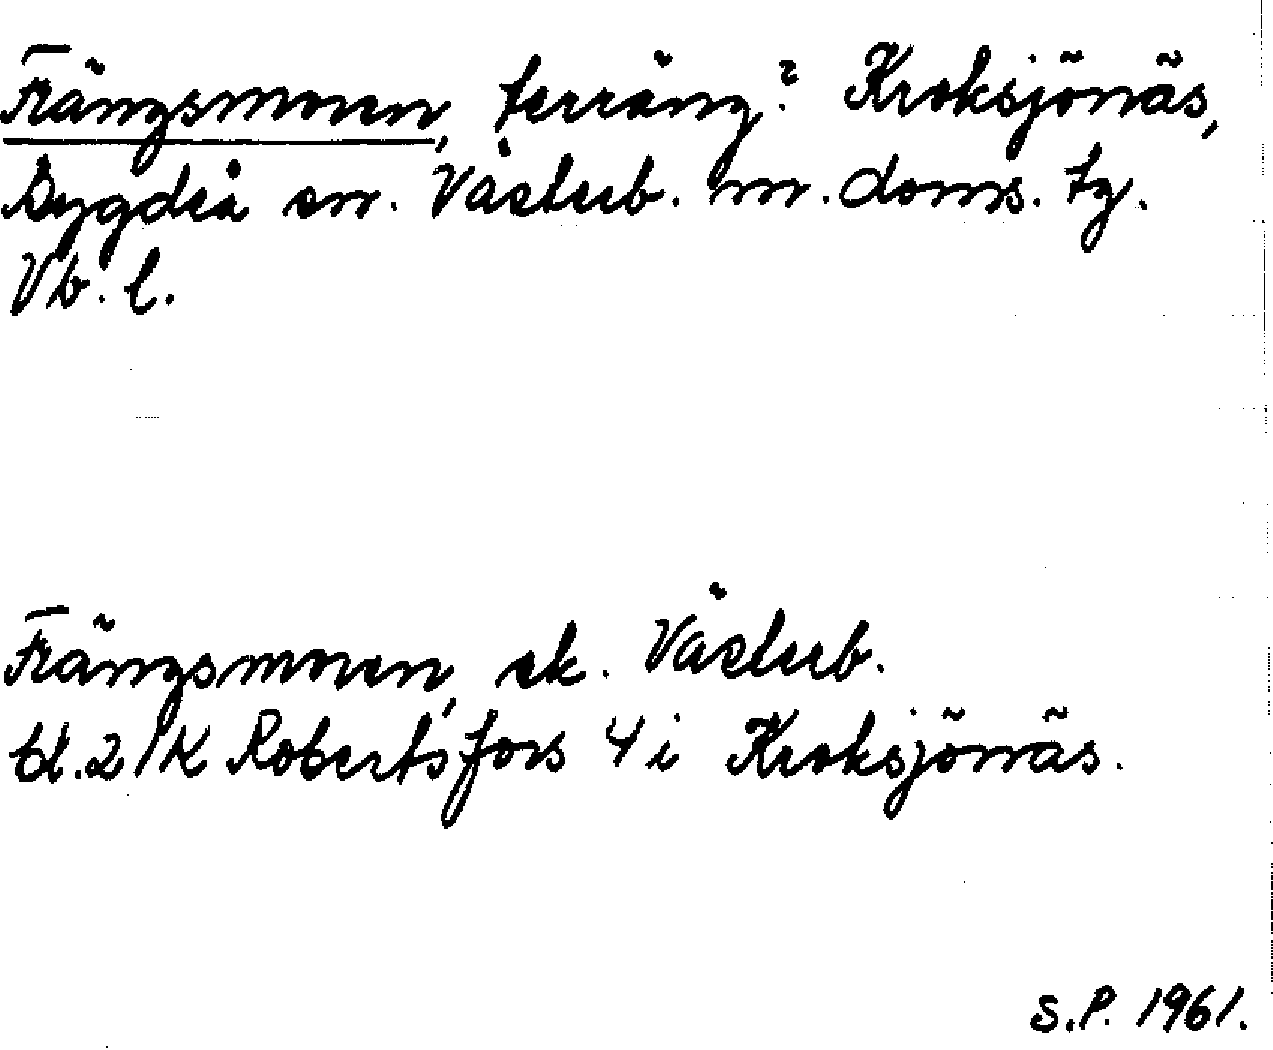 Frängsmoren, terräng? Kroksjönäs,
Bygdeå sn. Västerb. m. doms. tg.
Vb. l.
Frängsmoren, ek. Västerb.
bl. 2/K Robertsfors 4 i Kroksjönäs.
S.P. 1961.